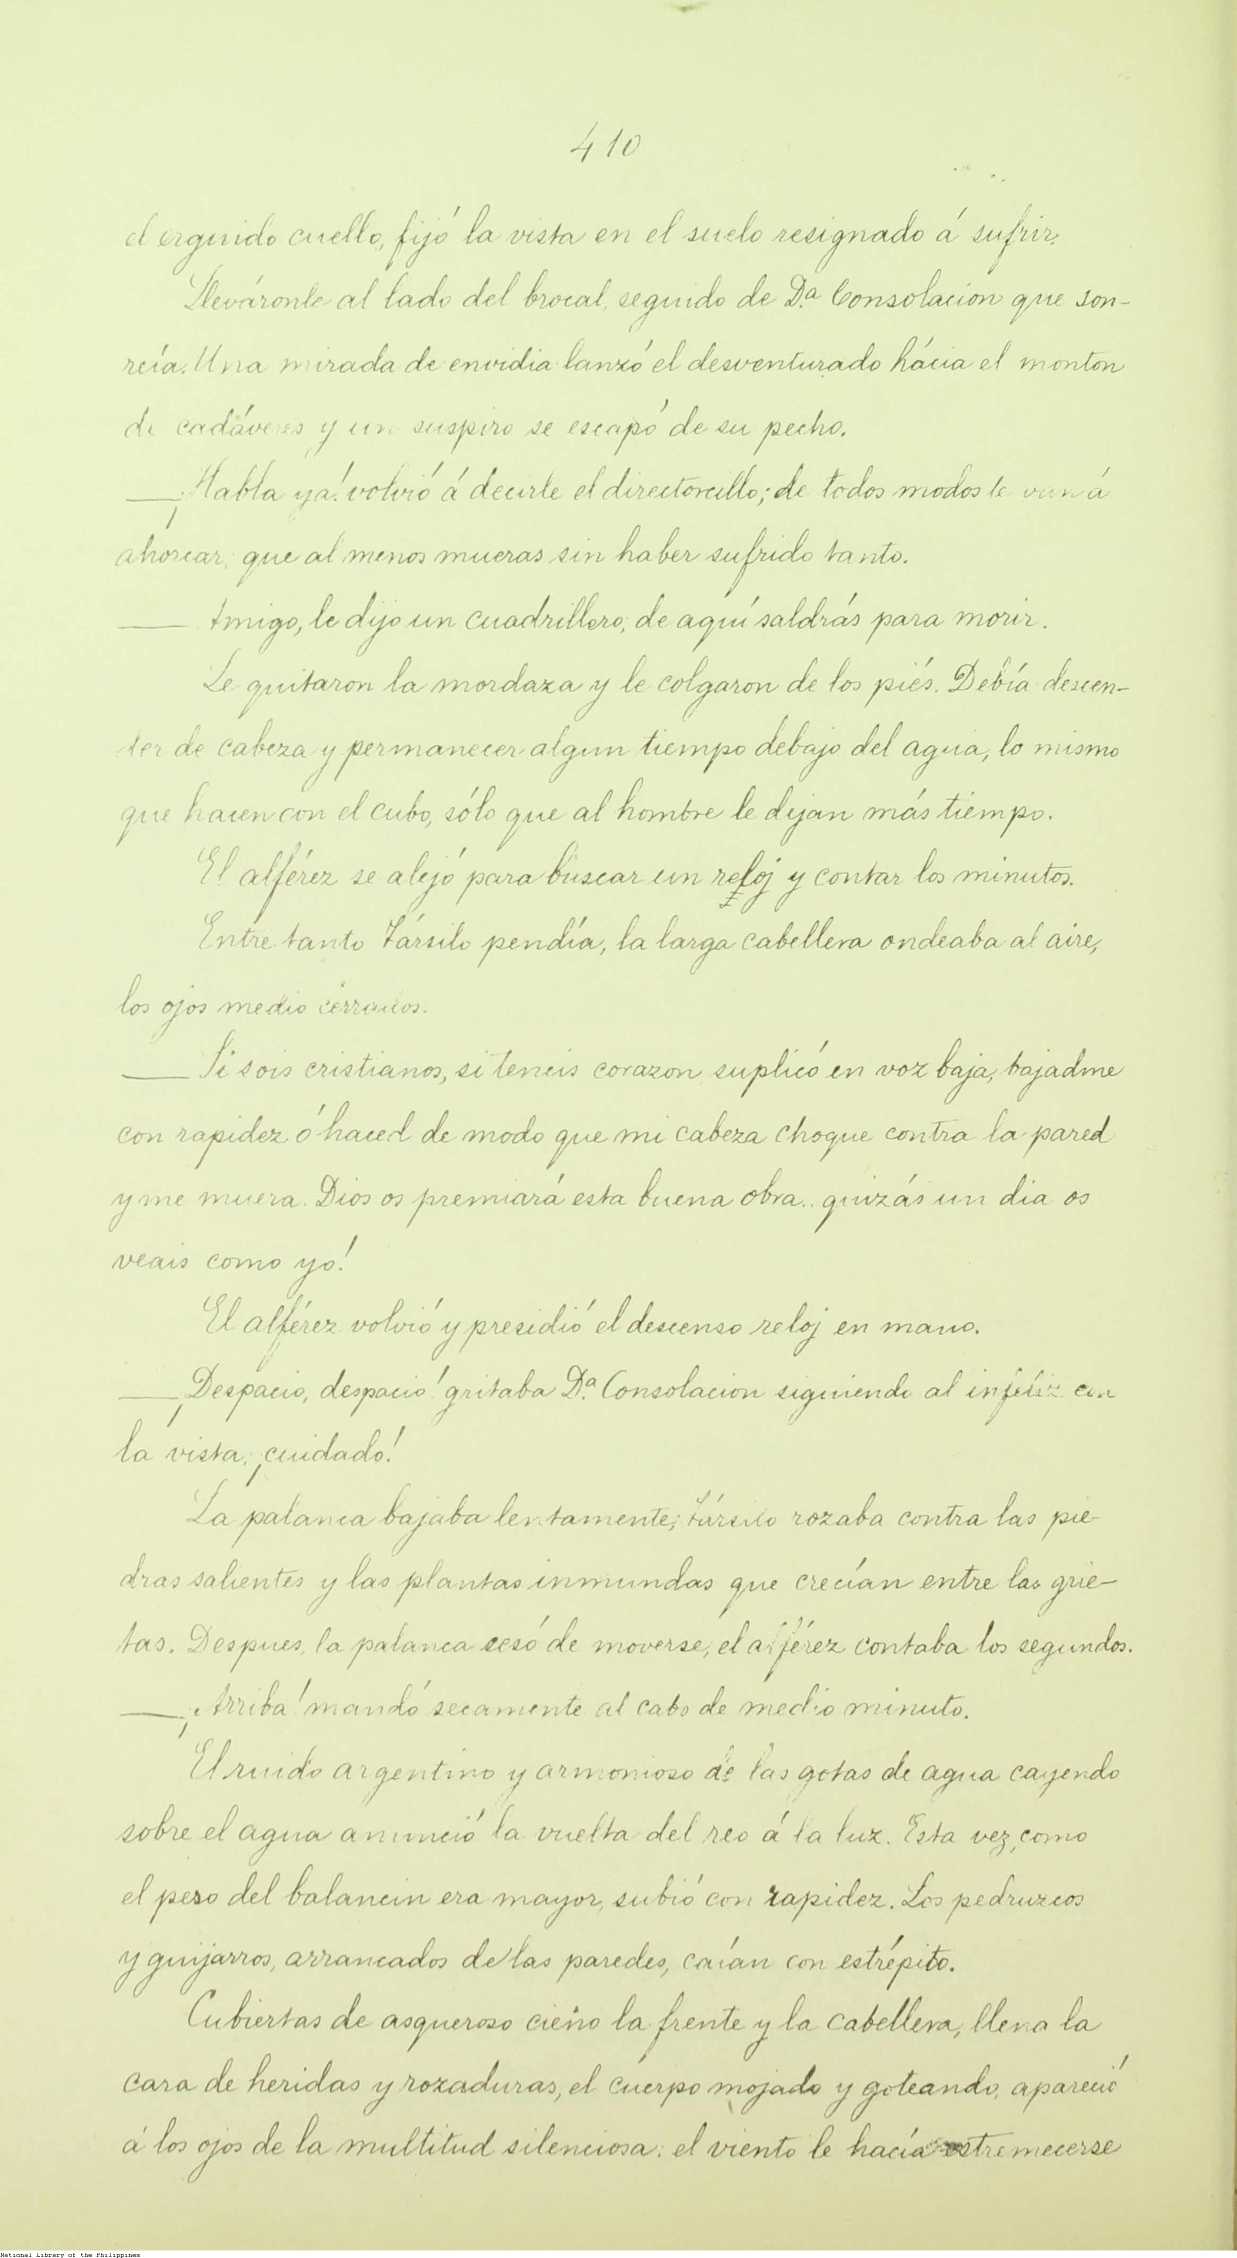 410
el erguido cuello, fijó la vista en el suelo resignado á sufrir.
Lleváronle al lado del brocal, seguido de D.ª Consolacion que son-
reía. Una mirada de envidia lanzó el desventurado hácia el monton
de cadáveres y un suspiro se escapó de su pecho.
—¡Habla ya! volvió á decirle el directorcillo; de todos modos te van á
ahorcar; que al menos mueras sin haber sufrido tanto.
— Amigo, le dijo un cuadrillero, de aquí saldrás para morir.
Le quitaron la mordaza y le colgaron de los piés. Debía descen-
der de cabeza y permanecer algun tiempo debajo del agua, lo mismo
que hacen con el cubo, sólo que al hombre le dejan más tiempo.
El alférez se alejó para buscar un reloj y contar los minutos.
Entre tanto Társilo pendía, la larga cabellera ondeaba al aire,
los ojos medio cerrados.
— Si sois cristianos, si teneis corazon suplicó en voz baja, bajadme
con rapidez ó haced de modo que mi cabeza choque contra la pared
y me muera. Dios os premiará esta buena obra.. quizás un dia os
veais como yo!
El alférez volvió y presidió el descenso reloj en mano.
—¡Despacio, despacio! gritaba D.ª Consolacion siguiendo al infeliz con
la vista; ¡cuidado!
La palanca bajaba lentamente; Társilo rozaba contra las pie-
dras salientes y las plantas inmundas que crecían entre las grie-
tas. Despues, la palanca cesó de moverse; el alférez contaba los segundos.
—¡Arriba! mandó secamente al cabo de medio minuto.
El ruido argentino y armonioso de las gotas de agua cayendo
sobre el agua anunció la vuelta del reo á la luz. Esta vez, como
el peso del balancin era mayor, subió con rapidez. Los pedruzcos
y guijarros, arrancados de las paredes, caían con estrépito.
Cubiertas de asqueroso cieno la frente y la cabellera, llena la
cara de heridas y rozaduras, el cuerpo mojado y goteando, apareció
á los ojos de la multitud silenciosa: el viento le hacía estremecerse
National Library of the Philippines